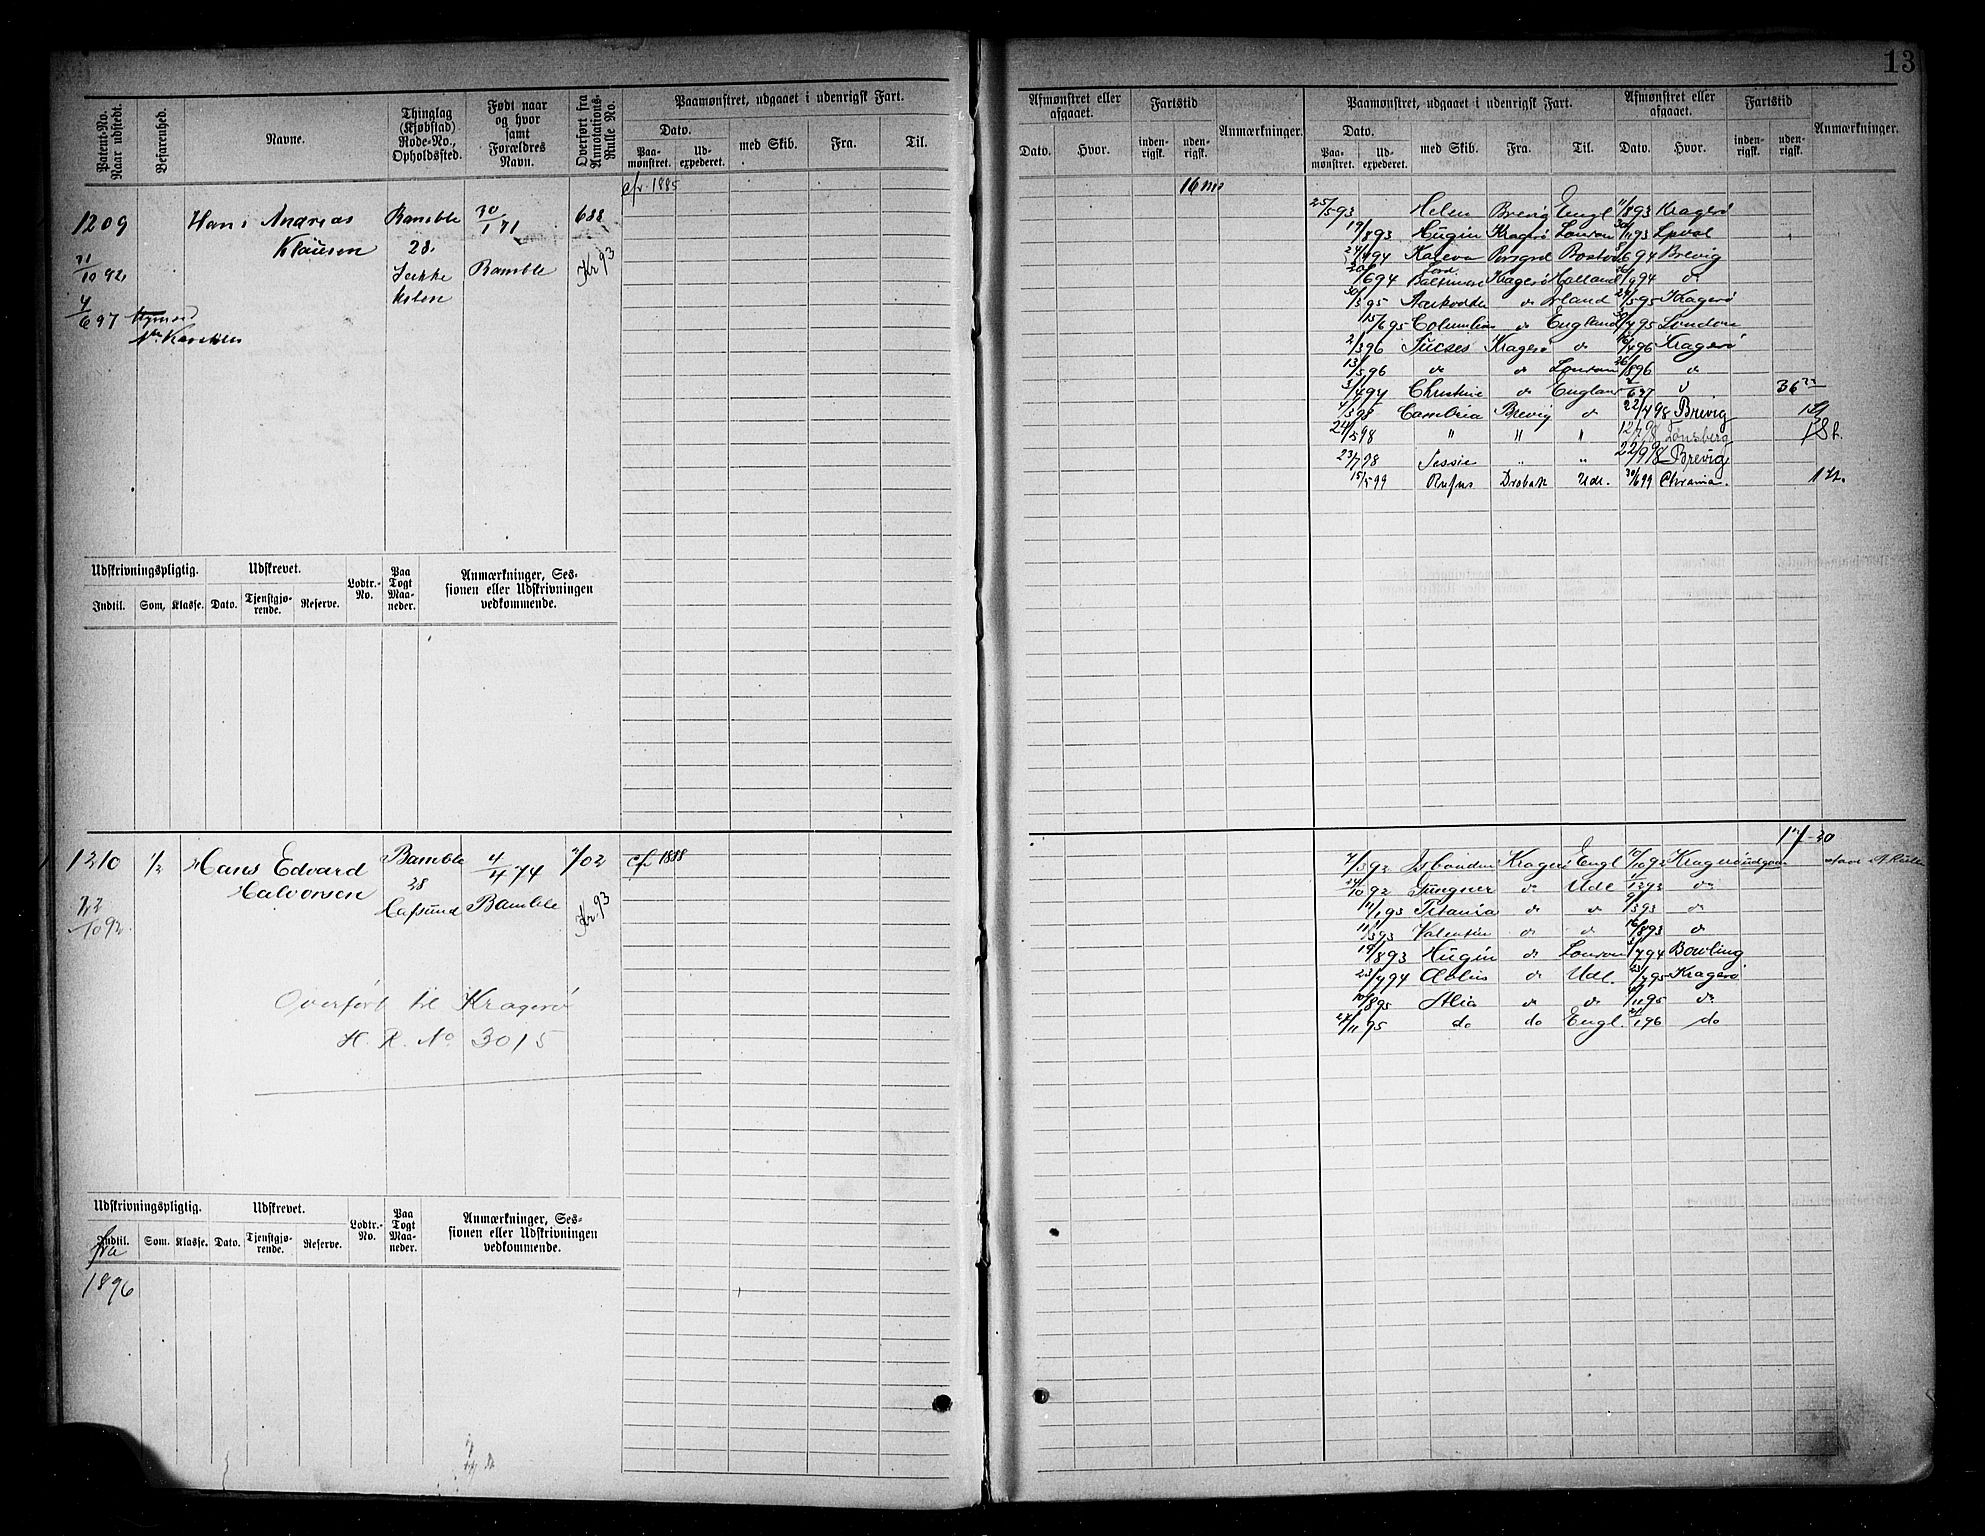 13
Patent-No. Naar udstedt.
Befarenhed.
Navne.
Thinglag (Kjøbstad) Rode-No., Opholdssted.
Født naar og hvor samt Forældres Navn.
Overført fra Annotations-Rulle No.
Paamønstret, udgaaet i udenrigsk Fart.
Dato.
Paa-mønstret.
Ud-expederet.
med Skib.
Fra.
Til.
Afmønstret eller afgaaet.
Dato.
Hvor.
Fartstid
inden-rigsk.
uden-rigsk.
Anmærkninger.
Paamønstret, udgaaet i udenrigsk Fart.
Dato.
Paa-mønstret.
Ud-expederet.
med Skib.
Fra.
Til.
Afmønstret eller afgaaet.
Dato.
Hvor.
Fartstid
inden-rigsk.
uden-rigsk.
Anmærkninger.
cfr. 1885
1209
Hans Andreas
Klausen
Bamble
28.
30/1 71
Bamble
688
Kr 93
31/10 92
4/6 97
16 ms
25/5 93 Helen Brevig Engl 11/8 93 Kragerø
17/8 93 Hugin Kragerø London 11 93
Kaleva Porsgrd Boston 6 94 Brevig
6 94 Baltimore Kragerø Holland 9 94 do
30/3 95 do Irland 5 95 Kragerø
15/6 95 Columbia do England 30/7 95 London
2/3 96 Sucses Kragerø do 4 96 Kragerø
13/5 96 do do London 26/8 96 do
3/4 97 Christine do England 6 97 do 36
4/3 98 Cambria Brevig do 22/4 98 Brevig
24/5 98 " " " 12/7 98 Tønsberg
23/7 98 Jessie " " 22/9 98 Brevig
15/5 99 Rufus Drøbak Udl. 30/6 99 Chrania.
Udskrivningspligtig.
Indtil.
Som.
Klasse.
Udskrevet.
Dato.
Tjenstgjø-rende.
Reserve.
Lodtr.-No.
Paa Togt Maa-neder.
Anmærkninger, Ses-sionen eller Udskrivningen vedkommende.
1210
1/2
Hans Edvard
Halvorsen
Bamble
28
Hafsund
4/4 74
Bamble
702
Kr 93
cfr 1888
10 92
17-20
Kragerø Engl 10 92 Kragerø
10 92 Gungner do Udl 12 92 do
1 93 Titania do do 3 93 do
11/3 93 Valentin do do 16/8 93 do
19/8 93 Hugin do London 7 94 Bowling
23/7 94 Aeolus do Udl. 7 95 Kragerø
10/8 95 Alia do do 11 95 do
27/11 95 do do Engl. 1 96 do
Overført til Kragerø
H. R. No 3015
Udskrivningspligtig.
Indtil.
Som.
Klasse.
Udskrevet.
Dato.
Tjenstgjø-rende.
Reserve.
Lodtr.-No.
Paa Togt Maa-neder.
Anmærkninger, Ses-sionen eller Udskrivningen vedkommende.
fra
1896